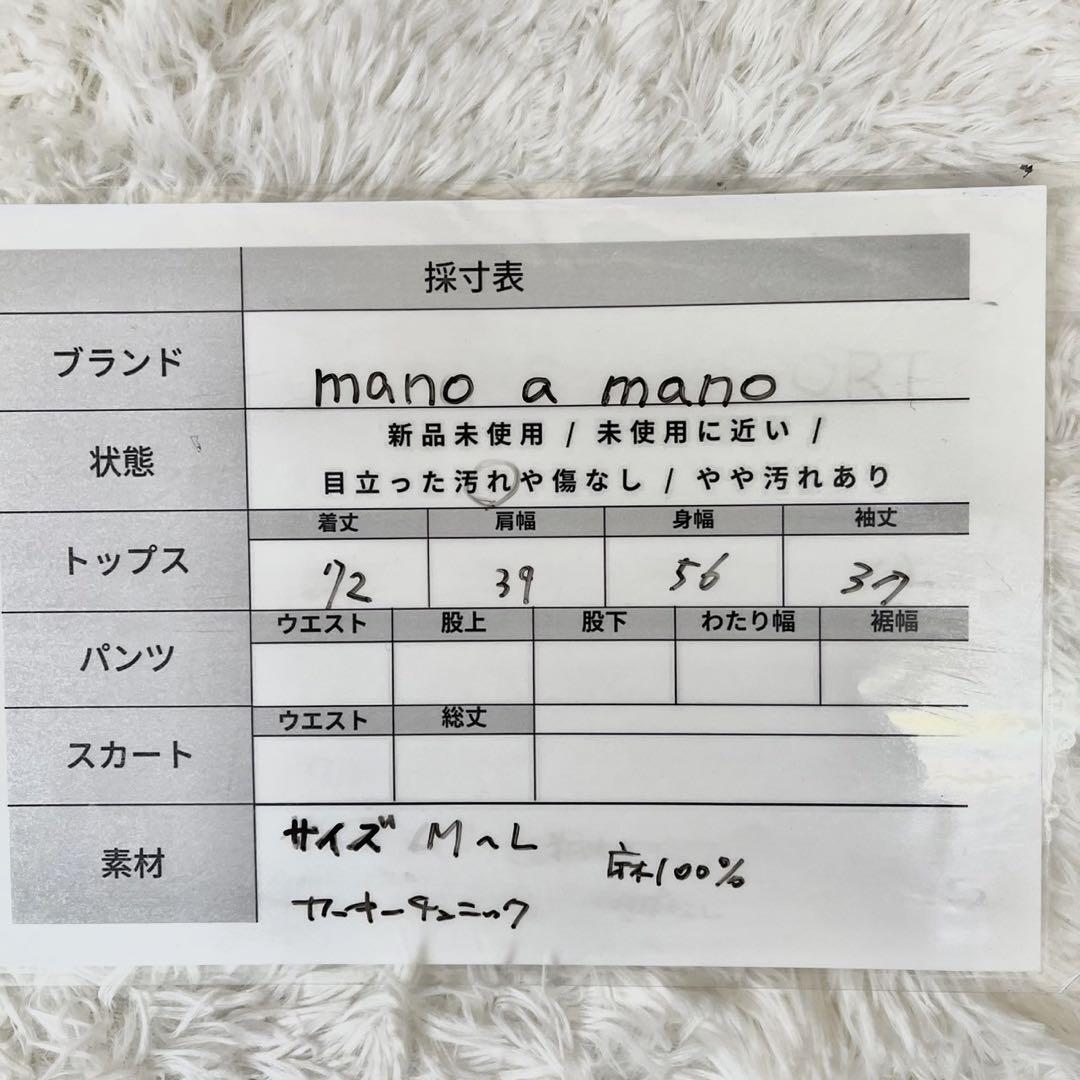 採寸表
ブランド
mano a mano
状態
新品未使用 / 未使用に近い /
目立った汚れや傷なし / やや汚れあり
トップス
着丈 肩幅 身幅 袖丈
72 39 56 37
パンツ
ウエスト 股上 股下 わたり幅 裾幅
スカート
ウエスト 総丈
素材
サイズ M～L
麻100%
カーキーチュニック